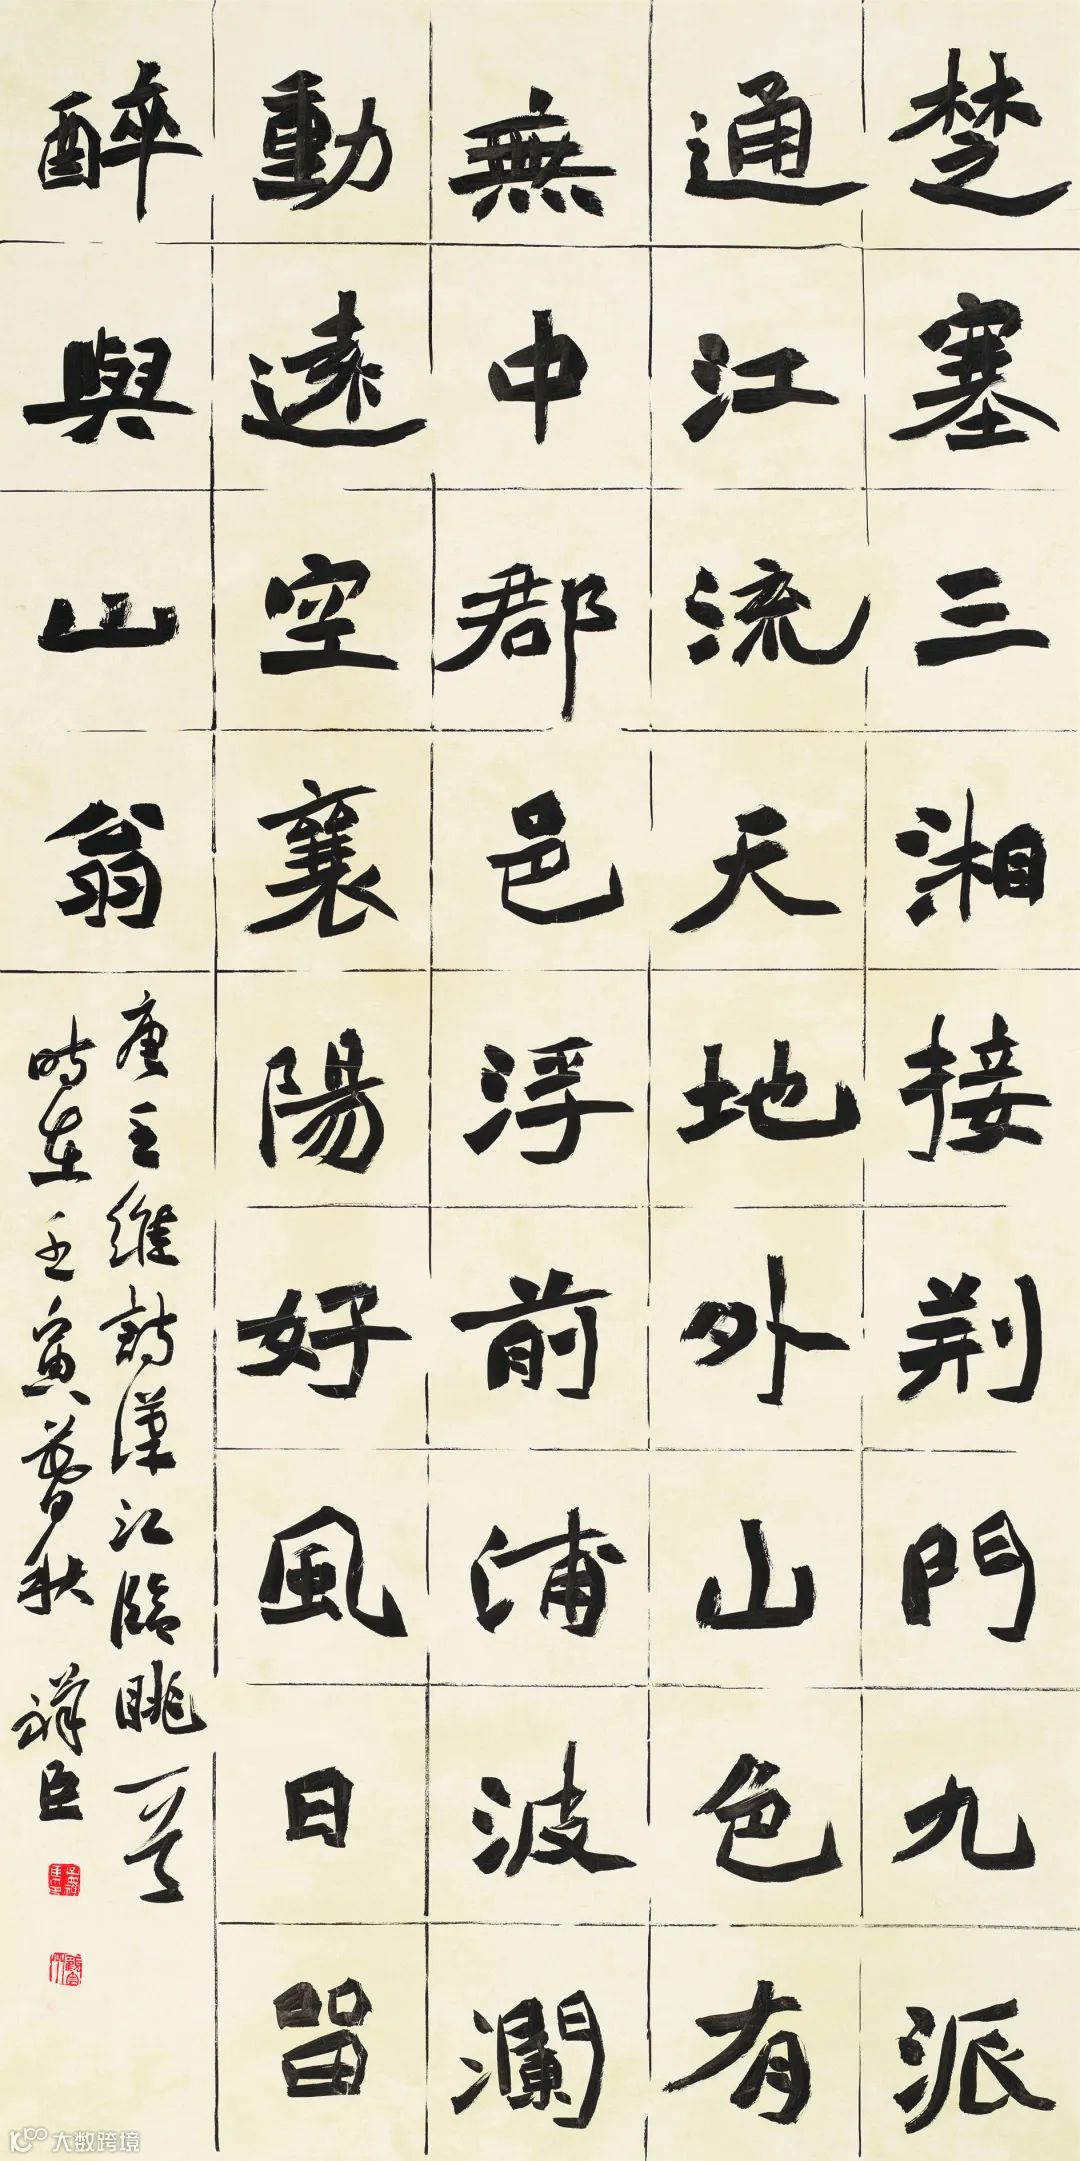 楚塞三湘接荆門九派
通江流天地外山色有
無中郡邑浮前浦波瀾
動遠空襄陽好風日留
醉與山翁
唐王維詩漢江臨眺一首
時在壬寅暮秋 祥臣
大数跨境